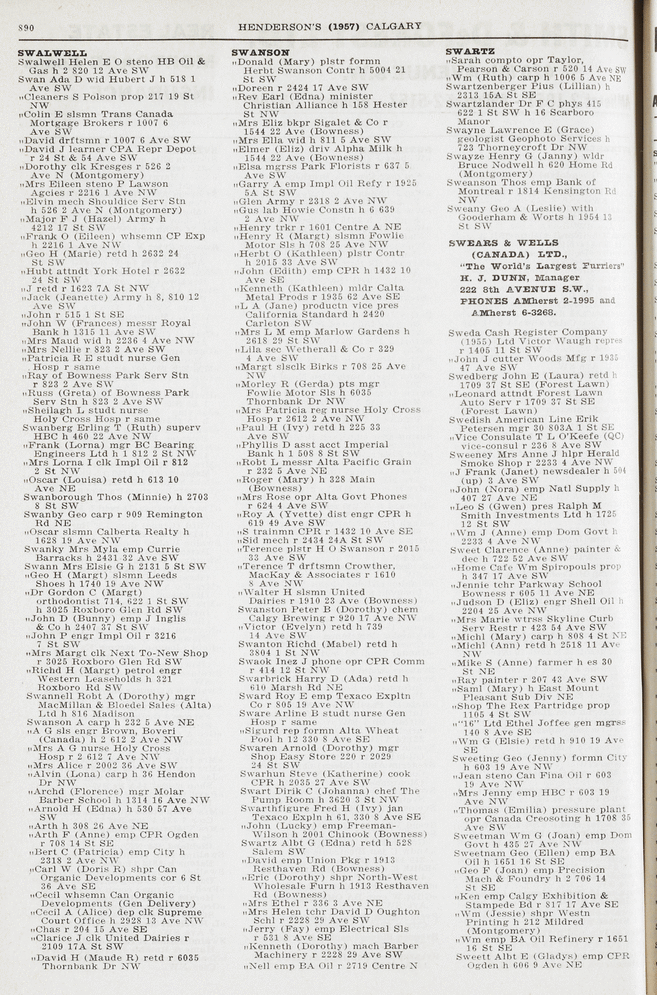 890
HENDERSON'S (1957) CALGARY
SWALWELL
Swalwell Helen E O steno HB Oil &
Gas h 2 820 12 Ave SW
Swan Ada D wid Hubert J h 518 1
Ave SW
„Cleaners S Polson prop 217 19 St
NW
„Colin E slsmn Trans Canada
Mortgage Brokers r 1007 6
Ave SW
„David drftsmn r 1007 6 Ave SW
„David J learner CPA Repr Depot
r 24 St & 54 Ave SW
„Dorothy clk Kresges r 526 2
Ave N (Montgomery)
„Mrs Eileen steno P Lawson
Agcies r 2216 1 Ave NW
„Elvin mech Shouldice Serv Stn
h 526 2 Ave N (Montgomery)
„Major F J (Hazel) Army h
4212 17 St SW
„Frank O (Eileen) whsemn CP Exp
h 2216 1 Ave NW
„Geo H (Marie) retd h 2632 24
St SW
„Hubt attndt York Hotel r 2632
24 St SW
„J retd r 1623 7A St NW
„Jack (Jeanette) Army h 8, 810 12
Ave SW
„John r 515 1 St SE
„John W (Frances) messr Royal
Bank h 1315 11 Ave SW
„Mrs Maud wid h 2236 4 Ave NW
„Mrs Nellie r 823 2 Ave SW
„Patricia R E studt nurse Gen
Hosp r same
„Ray of Bowness Park Serv Stn
r 823 2 Ave SW
„Russ (Greta) of Bowness Park
Serv Stn h 823 2 Ave SW
„Sheilagh L studt nurse
Holy Cross Hosp r same
Swanberg Erling T (Ruth) superv
HBC h 460 22 Ave NW
„Frank (Lorna) mgr BC Bearing
Engineers Ltd h 1 812 2 St NW
„Mrs Lorna I clk Impl Oil r 812
2 St NW
„Oscar (Louisa) retd h 613 10
Ave NE
Swanborough Thos (Minnie) h 2703
8 St SW
Swanby Geo carp r 909 Remington
Rd NE
„Oscar slsmn Calberta Realty h
1628 19 Ave NW
Swanky Mrs Myla emp Currie
Barracks h 2431 32 Ave SW
Swann Mrs Elsie G h 2131 5 St SW
„Geo H (Margt) slsmn Leeds
Shoes h 1740 19 Ave NW
„Dr Gordon C (Margt)
orthodontist 714, 622 1 St SW
h 3025 Roxboro Glen Rd SW
„John D (Bunny) emp J Inglis
& Co h 2407 37 St SW
„John P engr Impl Oil r 3216
7 St SW
„Mrs Margt clk Next To-New Shop
r 3025 Roxboro Glen Rd SW
„Richd H (Margt) petrol engr
Western Leaseholds h 321
Roxboro Rd SW
Swannell Robt A (Dorothy) mgr
MacMillan & Bloedel Sales (Alta)
Ltd h 816 Madison
Swanson A carp h 232 5 Ave NE
„A G sls engr Brown, Boveri
(Canada) h 2 612 2 Ave NW
„Mrs A G nurse Holy Cross
Hosp r 2 612 7 Ave NW
„Mrs Alice r 2002 36 Ave SW
„Alvin (Lona) carp h 36 Hendon
Dr NW
„Archd (Florence) mgr Molar
Barber School h 1314 16 Ave NW
„Arnold H (Edna) h 530 57 Ave
SW
„Arth h 308 26 Ave NE
„Arth F (Anne) emp CPR Ogden
r 708 14 St SE
„Bert C (Patricia) emp City h
2318 2 Ave NW
„Carl W (Doris R) shpr Can
Organic Developments cor 6 St
36 Ave SE
„Cecil whsemn Can Organic
Developments (Gen Delivery)
„Cecil A (Alice) dep clk Supreme
Court Office h 2928 13 Ave NW
„Chas r 204 15 Ave SE
„Clarice J clk United Dairies r
2109 17A St SW
„David H (Maude R) retd r 6035
Thornbank Dr NW
SWANSON
„Donald (Mary) plstr formn
Herbt Swanson Contr h 5004 21
St SW
„Doreen r 2424 17 Ave SW
„Rev Earl (Edna) minister
Christian Alliance h 158 Hester
St NW
„Mrs Eliz bkpr Sigalet & Co r
1544 22 Ave (Bowness)
„Mrs Ella wid h 811 5 Ave SW
„Elmer (Eliz) driv Alpha Milk h
1544 22 Ave (Bowness)
„Elsa mgrss Park Florists r 637 5
Ave SW
„Garry A emp Impl Oil Refy r 1925
5A St SW
„Glen Army r 2318 2 Ave NW
„Gus lab Howie Constn h 6 639
2 Ave NW
„Henry trkr r 1601 Centre A NE
„Henry R (Margt) slsmn Fowlie
Motor Sls h 708 25 Ave NW
„Herbt O (Kathleen) plstr Contr
h 2015 33 Ave SW
„John (Edith) emp CPR h 1432 10
Ave SE
„Kenneth (Kathleen) mldr Calta
Metal Prods r 1935 62 Ave SE
„L A (Jane) productn vice pres
California Standard h 2420
Carleton SW
„Mrs L M emp Marlow Gardens h
2618 29 St SW
„Lila sec Wetherall & Co r 329
4 Ave SW
„Margt slsclk Birks r 708 25 Ave
NW
„Morley R (Gerda) pts mgr
Fowlie Motor Sls h 6035
Thornbank Dr NW
„Mrs Patricia reg nurse Holy Cross
Hosp r 2612 2 Ave NW
„Paul H (Ivy) retd h 225 33
Ave SW
„Phyllis D asst acct Imperial
Bank h 1 508 8 St SW
„Robt L messr Alta Pacific Grain
r 232 5 Ave NE
„Roger (Mary) h 328 Main
(Bowness)
„Mrs Rose opr Alta Govt Phones
r 624 4 Ave SW
„Roy A (Yvette) dist engr CPR h
619 49 Ave SW
„S trainmn CPR r 1432 10 Ave SE
„Sid mech r 2434 24A St SW
„Terence plstr H O Swanson r 2015
33 Ave SW
„Terence T drftsmn Crowther,
MacKay & Associates r 1610
8 Ave NW
„Walter H slsmn United
Dairies r 1910 23 Ave (Bowness)
Swanston Peter B (Dorothy) chem
Calgy Brewing r 920 17 Ave NW
„Victor (Evelyn) retd h 739
14 Ave SW
Swanton Richd (Mabel) retd h
3804 1 St NW
Swaok Inez J phone opr CPR Comm
r 414 12 St NW
Swarbrick Harry D (Ada) retd h
610 Marsh Rd NE
Sward Roy E emp Texaco Expltn
Co r 805 19 Ave NW
Sware Arline B studt nurse Gen
Hosp r same
„Sigurd rep formn Alta Wheat
Pool h 12 330 8 Ave SE
Swaren Arnold (Dorothy) mgr
Shop Easy Store 220 r 2029
24 St SW
Swarhun Steve (Katherine) cook
CPR h 2035 27 Ave SW
Swart Dirik C (Johanna) chef The
Pump Room h 3620 3 St NW
Swarthfigure Fred H (Ivy) jan
Texaco Expln h 61, 330 8 Ave SE
„John (Lucky) emp Freeman-
Wilson h 2001 Chinook (Bowness)
Swartz Albt G (Edna) retd h 528
Salem SW
„David emp Union Pkg r 1913
Resthaven Rd (Bowness)
„Eric (Dorothy) shpr North-West
Wholesale Furn h 1913 Resthaven
Rd (Bowness)
„Mrs Ethel r 336 3 Ave NE
„Mrs Helen tchr David D Oughton
Schl r 2228 29 Ave SW
„Jerry (Fay) emp Electrical Sls
r 531 8 Ave SE
„Kenneth (Dorothy) mach Barber
Machinery r 2228 29 Ave SW
„Nell emp BA Oil r 2719 Centre N
SWARTZ
„Sarah compto opr Taylor,
Pearson & Carson r 520 14 Ave SW
„Wm (Ruth) carp h 1006 5 Ave NE
Swartzenberger Pius (Lillian) h
2313 15A St SE
Swartzlander Dr F C phys 415
622 1 St SW h 16 Scarboro
Manor
Swayne Lawrence E (Grace)
geologist Geophoto Services h
723 Thorneycroft Dr NW
Swayze Henry G (Janny) wldr
Bruce Nodwell h 620 Home Rd
(Montgomery)
Sweanson Thos emp Bank of
Montreal r 1814 Kensington Rd
NW
Sweany Geo A (Leslie) with
Gooderham & Worts h 1954 13
St SW
SWEARS & WELLS
(CANADA) LTD.,
"The World's Largest Furriers"
H. J. DUNN, Manager
222 8th AVENUE S.W.,
PHONES AMherst 2-1995 and
AMherst 6-3268.
Sweda Cash Register Company
(1955) Ltd Victor Waugh repres
r 1405 11 St SW
„John J cutter Woods Mfg r 1935
47 Ave SW
Swedberg John E (Laura) retd h
1709 37 St SE (Forest Lawn)
„Leonard attndt Forest Lawn
Auto Serv r 1709 37 St SE
(Forest Lawn)
Swedish American Line Erik
Petersen mgr 30 803A 1 St SE
„Vice Consulate T L O'Keefe (QC)
vice-consul r 236 8 Ave SW
Sweeney Mrs Anne J hlpr Herald
Smoke Shop r 2233 4 Ave NW
„J Frank (Janet) newsdealer h 504
(up) 3 Ave SW
„John (Nora) emp Natl Supply h
407 27 Ave NE
„Leo S (Gwen) pres Ralph M
Smith Investments Ltd h 1725
12 St SW
„Wm J (Anne) emp Dom Govt h
2233 4 Ave NW
Sweet Clarence (Anne) painter &
dec h 722 52 Ave SW
„Home Cafe Wm Spiropouls prop
h 347 17 Ave SW
„Jennie tchr Parkway School
Bowness r 605 11 Ave NE
„Judson D (Eliz) engr Shell Oil h
2204 25 Ave NW
„Mrs Marie wtrss Skyline Curb
Serv Restr r 423 54 Ave SW
„Michl (Mary) carp h 808 4 St NE
„Michl (Ann) retd h 2518 11 Ave
NW
„Mike S (Anne) farmer h es 30
St NE
„Ray painter r 207 43 Ave SW
„Saml (Mary) h East Mount
Pleasant Sub Div NE
„Shop The Rex Partridge prop
1105 4 St SW
„"16" Ltd Ethel Joffee gen mgrss
140 8 Ave SE
„Wm G (Elsie) retd h 910 19 Ave
SE
Sweeting Geo (Jenny) formn City
h 603 19 Ave NW
„Jean steno Can Fina Oil r 603
19 Ave NW
„Mrs Jenny emp HBC r 603 19
Ave NW
„Thomas (Emilia) pressure plant
opr Canada Creosoting h 1708 35
Ave SW
Sweetman Wm G (Joan) emp Dom
Govt h 435 27 Ave NW
Sweetnam Geo (Ellen) emp BA
Oil h 1651 16 St SE
„Geo F (Joan) emp Precision
Mach & Foundry h 2 706 14
St SE
„Ken emp Calgy Exhibition &
Stampede Bd r 817 17 Ave SE
„Wm (Jessie) shpr Westn
Printing h 212 Mildred
(Montgomery)
„Wm emp BA Oil Refinery r 1651
16 St SE
Sweett Albt E (Gladys) emp CPR
Ogden h 606 9 Ave NE